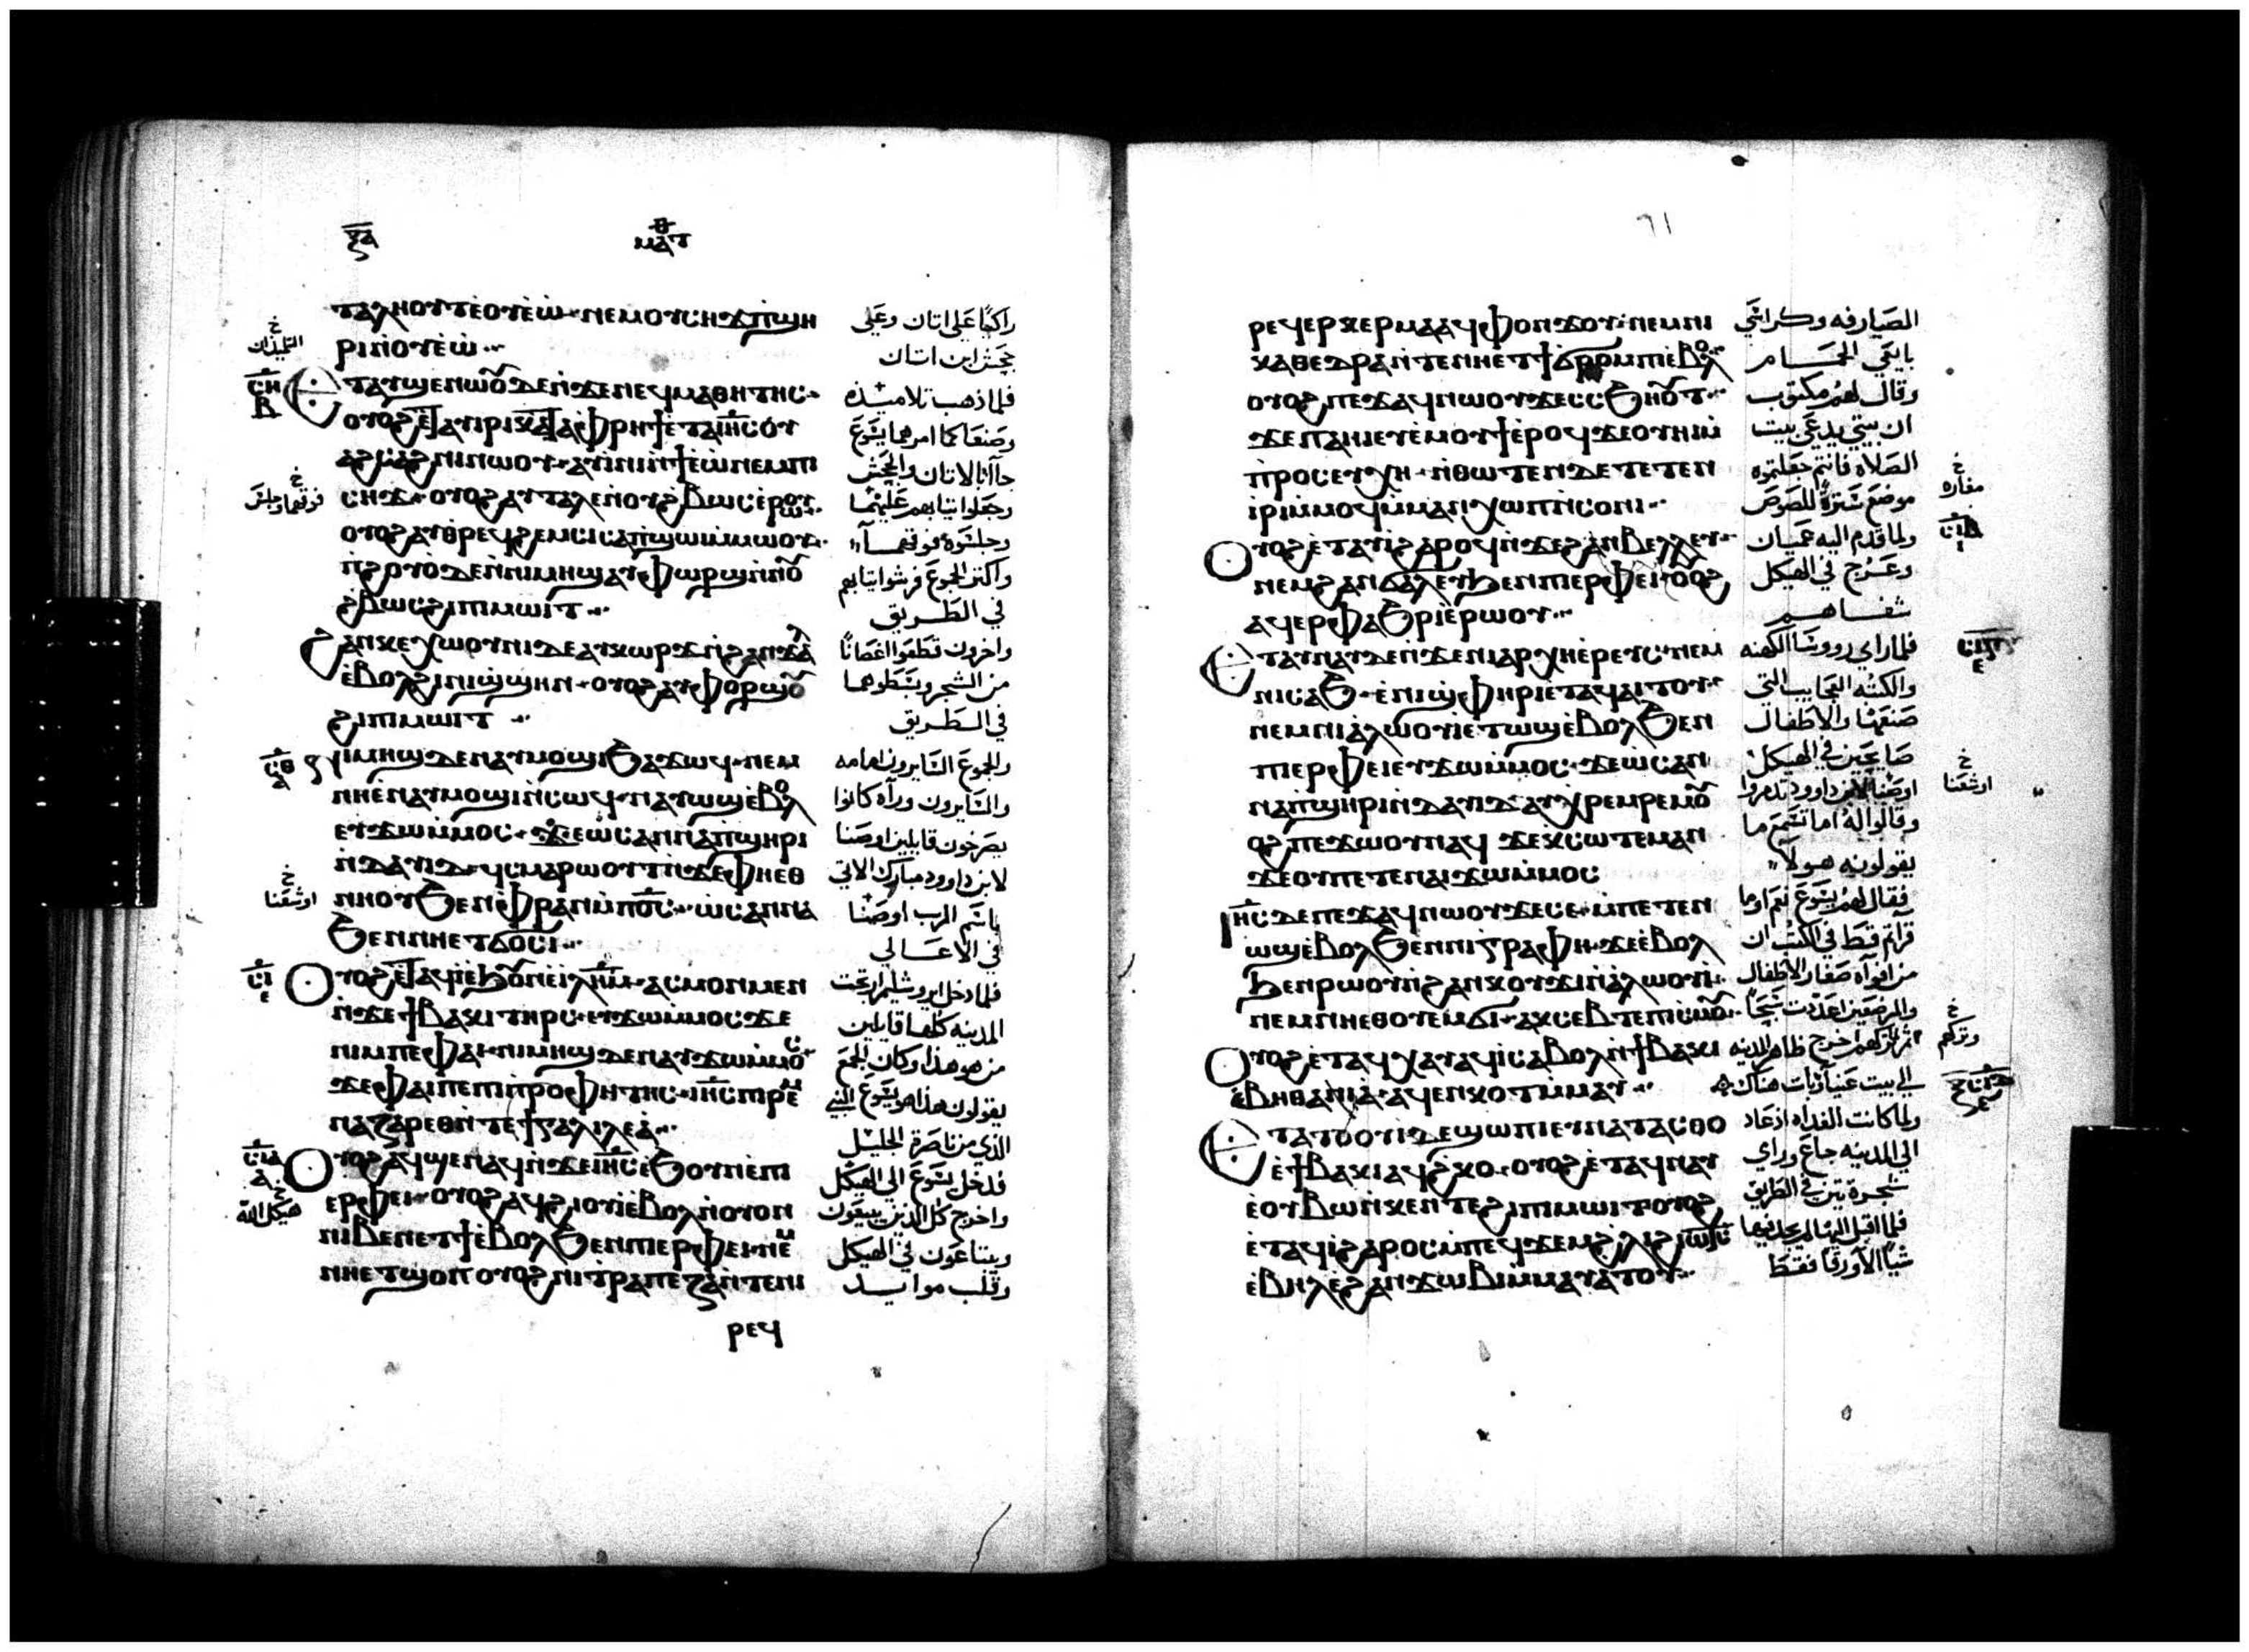 ⲝ̅ⲁ̅
ⲙⲁⲧ
ⲧⲁⲗⲏⲟⲩⲧⲉⲟⲩⲉ̀ⲱ̀ ⲛⲉⲙⲟⲩⲥⲏϫⲡ̀ϣⲏ
ⲣⲓⲛ̀ⲟⲩⲉ̀ⲱ̀
ⲉⲧⲁⲩϣⲉⲛⲱⲟⲩ ⲇⲉⲛ̀ϫⲉⲛⲉϥⲙⲁⲑⲏⲧⲏⲥ
ⲟⲩⲟϩⲉⲧⲁⲩⲓⲣⲓⲕⲁⲧⲁⲫⲣⲏϯⲉⲧⲁⲓⲏ̅ⲥ̅ⲟⲩ
ⲁϩⲥⲁϩⲛⲓⲛⲱⲟⲩ ⲁⲩⲓⲛⲓⲛ̀ϯⲉ̀ⲱ̀ⲛⲉⲙⲡⲓ
ⲥⲏϫ ⲟⲩⲟϩⲁⲩⲧⲁⲗⲉⲛⲟⲩϩ̀ⲃⲱⲥⲉ̀ⲣⲱⲟⲩ
ⲟⲩⲟϩⲁⲩⲑⲣⲉϥϩⲉⲙⲥⲓⲥⲁⲡ̀ϣⲱⲓⲙ̀ⲙⲱⲟⲩ
ⲡ̀ϩⲟⲩⲟ̀ⲇⲉⲛ̀ⲛⲓⲙⲏϣⲁⲩⲫⲱⲣϣⲛ̀ⲛⲟⲩ
ϩ̀ⲃⲱⲥϩⲓⲡⲓⲙⲱⲓⲧ
ϩⲁⲛⲕⲉⲭⲱⲟⲩⲛⲓⲇⲉⲁⲩⲕⲱⲣϫⲛ̀ϩⲁⲛϫⲁⲗ
ⲉ̀ⲃⲟⲗϩⲓⲛⲓϣ̀ϣⲏⲛ ⲟⲩⲟϩⲁⲩⲫⲟⲣϣⲟⲩ
ϩⲓⲡⲓⲙⲱⲓⲧ
ⲛⲓⲙⲏϣⲇⲉⲛⲁⲩⲙⲟϣⲓϧⲁϫⲱϥ ⲛⲉⲙ
ⲛⲏⲉ̀ⲛⲁⲩⲙⲟϣⲓⲛ̀ⲥⲱϥ ⲛⲁⲩⲱϣⲉ̀ⲃⲟⲗ
ⲉⲩϫⲱⲙ̀ⲙⲟⲥ ϫⲉⲱⲥⲁⲛⲛⲁⲡ̀ϣⲏⲣⲓ
ⲛ̀ⲇⲁⲩⲓⲇ ϥ̀ⲥⲙⲁⲣⲱⲟⲩⲧⲛ̀ϫⲉⲫⲏⲉⲑ
ⲛⲏⲟⲩϧⲉⲛⲫ̀ⲣⲁⲛⲙ̀ⲡ̅ⲟ̅ⲥ̅ ⲱ̀ⲥⲁⲛⲛⲁ
ϧⲉⲛⲛⲏⲉⲧϭⲟⲥⲓ
ⲟⲩⲟϩⲉⲧⲁϥⲓ̀ⲉ̀ϧⲟⲩⲛⲉ̀ⲓ̀ⲗ̅ⲏ̅ⲙ̅ ⲁⲥⲙⲟⲛⲙⲉⲛ
ⲛ̀ϫⲉϯⲃⲁⲕⲓⲧⲏⲣⲥ ⲉⲩϫⲱⲙ̀ⲙⲟⲥϫⲉ
ⲛⲓⲙⲡⲉⲫⲁⲓ ⲛⲓⲙⲏϣⲇⲉⲛⲁⲩϫⲱⲙ̀ⲙⲟⲥ
ϫⲉⲫⲁⲓⲡⲉⲡⲓⲡ̀ⲣⲟⲫⲏⲧⲏⲥ ⲓⲏ̅ⲥ̅ⲡⲓⲣⲉⲙ
ⲛⲁⲍⲁⲣⲉⲑⲛ̀ⲧⲉϯⲅⲁⲗⲓⲗⲉⲁ̀
ⲟⲩⲟϩⲁϥϣⲉⲛⲁϥⲛ̀ϫⲉⲓⲏ̅ⲥ̅ⲉ̀ϧⲟⲩⲛⲉ̀ⲡⲓ
ⲉⲣⲫⲉⲓ ⲟⲩⲟϩⲁϥϩⲓⲟⲩⲓ̀ⲉ̀ⲃⲟⲗⲛ̀ⲟⲩⲟⲛ
ⲛⲓⲃⲉⲛⲉⲧϯⲉ̀ⲃⲟⲗϧⲉⲛⲡⲓⲉⲣⲫⲉⲓ ⲛⲉⲙ
ⲛⲏⲉⲧϣⲱⲡ ⲟⲩⲟϩⲛⲓⲧ̀ⲣⲁⲡⲉⲍⲁⲛ̀ⲧⲉⲛⲓ
ⲣⲉϥ
راكبًا علي اتان وعلي
جحش ابن اتان
فلما ذهب تلاميذه
وصنعا كما امرهما يسوع
جاآ بالاتان والجحش
وجعلوا ثيابهم عليهما
وجلسوه فوقهما
واكثر الجموع فرشوا ثيابهم
في الطريق
واخرون قطعوا اغصانًا
من الشجر وبسطوهما
في الطريق
والجموع السايرون امامه
والسايرون ورآه كانوا
يصرخون قايلين اوصنا
لابن داوود مبارك الاتي
باسم الرب اوصنا
في الاعالي
فلما دخل ايروشليم ارتجت
المدينه كلها قايلين
من هو هذا وكان الجمع
يقولون هذا هو يسوع النبي
الذي من ناصرة الجليل
فدخل يسوع الي الهيكل
واخرج كل الذين يبيعون
ويبتاعون في الهيكل
وقلب موايد
التلميذان
فوقهما وجلس
اوشعنا
هيكل الله
٦١
ⲣⲉϥⲉⲣⲕⲉⲣⲙⲁ ⲁϥⲫⲟⲛϫⲟⲩ ⲛⲉⲙⲛⲓ
ⲕⲁⲑⲉⲇⲣⲁⲛ̀ⲧⲉⲛⲏⲉⲧϯϭⲣⲟⲙⲡⲓⲉ̀ⲃⲟⲗ
ⲟⲩⲟϩ ⲡⲉϫⲁϥⲛⲱⲟⲩϫⲉⲥⲥ̀ϧⲏⲟⲩⲧ
ϫⲉⲡⲁⲏⲓⲉⲩⲉ̀ⲙⲟⲩϯⲉ̀ⲣⲟϥϫⲉⲟⲩⲏⲓⲙ
ⲡ̀ⲣⲟⲥⲉⲩⲭⲏ ⲛ̀ⲑⲱⲧⲉⲛⲇⲉⲧⲉⲧⲉⲛ
ⲓ̀ⲣⲓⲙ̀ⲙⲟϥⲙ̀ⲙⲁⲛ̀ⲭⲱⲡⲛ̀ⲥⲟⲛⲓ
ⲟⲩⲟϩⲉ̀ⲧⲁⲩⲓ̀ϩⲁⲣⲟϥⲛ̀ϫⲉϩⲁⲛⲃⲉⲗⲗⲉⲩ
ⲛⲉⲙϩⲁⲛϭⲁⲗⲉⲩϧⲉⲛⲡⲓⲉⲣⲫⲉⲓ ⲟⲩⲟϩ
ⲁϥⲉⲣⲫⲁϧⲣⲓⲉ̀ⲣⲱⲟⲩ
ⲉⲧⲁⲩⲛⲁⲩⲇⲉⲛ̀ϫⲉⲛⲓⲁⲣⲭⲏⲉ̀ⲣⲉⲩⲥ ⲛⲉⲙ
ⲛⲓⲥⲁϧ ⲉ̀ⲛⲓϣ̀ⲫⲏⲣⲓⲉ̀ⲧⲁϥⲁⲓⲧⲟⲩ
ⲛⲉⲙⲛⲓⲁ̀ⲗⲱⲟⲩⲓ̀ⲉⲧⲱϣⲉ̀ⲃⲟⲗϧⲉⲛ
ⲡⲓⲉⲣⲫⲉⲓⲉⲩϫⲱⲙ̀ⲙⲟⲥ ϫⲉⲱ̀ⲥⲁⲛ
ⲛⲁⲡ̀ϣⲏⲣⲓⲛ̀ⲇⲁⲩⲓⲇ ⲁⲩⲭ̀ⲣⲉⲙⲣⲉⲙ ⲟⲩ
ⲟϩ ⲡⲉϫⲱⲟⲩⲛⲁϥ ϫⲉⲕ̀ⲥⲱⲧⲉⲙⲁⲛ
ϫⲉⲟⲩⲡⲉⲧⲉⲛⲁⲓϫⲱⲙ̀ⲙⲟⲥ
ⲓⲏ̅ⲥ̅ⲇⲉⲡⲉϫⲁϥⲛⲱⲟⲩϫⲉⲥⲉ ⲙ̀ⲡⲉⲧⲉⲛ
ⲱϣⲉ̀ⲃⲟⲗϧⲉⲛⲛⲓⲅ̀ⲣⲁⲫⲏ ϫⲉⲉ̀ⲃⲟⲗ
ϧⲉⲛⲣⲱⲟⲩⲛ̀ϩⲁⲛⲕⲟⲩϫⲓⲛ̀ⲁ̀ⲗⲱⲟⲩⲓ̀
ⲛⲉⲙⲛⲏⲉⲑⲟⲩⲉⲙϭⲓ ⲁⲕⲥⲉⲃⲧⲉⲡⲓⲥ̀ⲙⲟⲩ
ⲟⲩⲟϩⲉ̀ⲧⲁϥⲭⲁⲩⲁϥⲓ̀ⲥⲁⲃⲟⲗⲛ̀ϯⲃⲁⲕⲓ
ⲉ̀ⲃⲏⲑⲁⲛⲓⲁ̀ ⲁϥⲉⲛⲕⲟⲧⲙ̀ⲙⲁⲩ
ⲉⲧⲁⲧⲟⲟⲩⲓⲇⲉϣⲱⲡⲓⲉⲧⲁϥⲧⲁⲥⲑⲟ
ⲉ̀ϯⲃⲁⲕⲓⲁϥϩ̀ⲕⲟ ⲟⲩⲟϩⲉ̀ⲧⲁϥⲛⲁⲩ
ⲉ̀ⲟⲩⲃⲱⲛ̀ⲕⲉⲛⲧⲉϩⲓⲡⲓⲙⲱⲓⲧⲟⲩⲟϩ
ⲉ̀ⲧⲁϥⲓ̀ϩⲁⲣⲟⲥⲙ̀ⲡⲉϥϫⲉⲙϩ̀ⲗⲓϩⲓⲱⲧⲥ
ⲉ̀ⲃⲏⲗⲉ̀ϩⲁⲛϫⲱⲃⲓⲙ̀ⲙⲁⲩⲁⲧⲟⲩ
الصيارفه وكراسي
بايعي الحمام
وقال لهم مكتوب
ان بيتي يدعي بيت
الصلاه فانتم جعلتموه
موضع سترةً للصوص
ولما قدم اليه عميان
وعرج في الهيكل
شفاهم
فلما راي رووسا الكهنه
والكتبه العجايب التي
صنعها والاطفال
صايحين في الهيكل
اوصنا لابن داوود تذمروا
وقالوا له اما تسمع ما
يقولونه هولا
فقال لهم يسوع نعم اوما
قراتم قط في الكتب ان
من افواه صغار الاطفال
والمرضعين اعددت سبحًا
ثم تركهم وخرج ظاهر المدينه
الي بيت عنيا وبات هناك
ولما كانت الغداه اذ عاد
الي المدينه جاع وراي
شجرة تين في الطريق
فلما اقبل اليها لم يجد فيها
شيًا الا ورقًا فقط
مغاره
اوشعنا
وتركهم